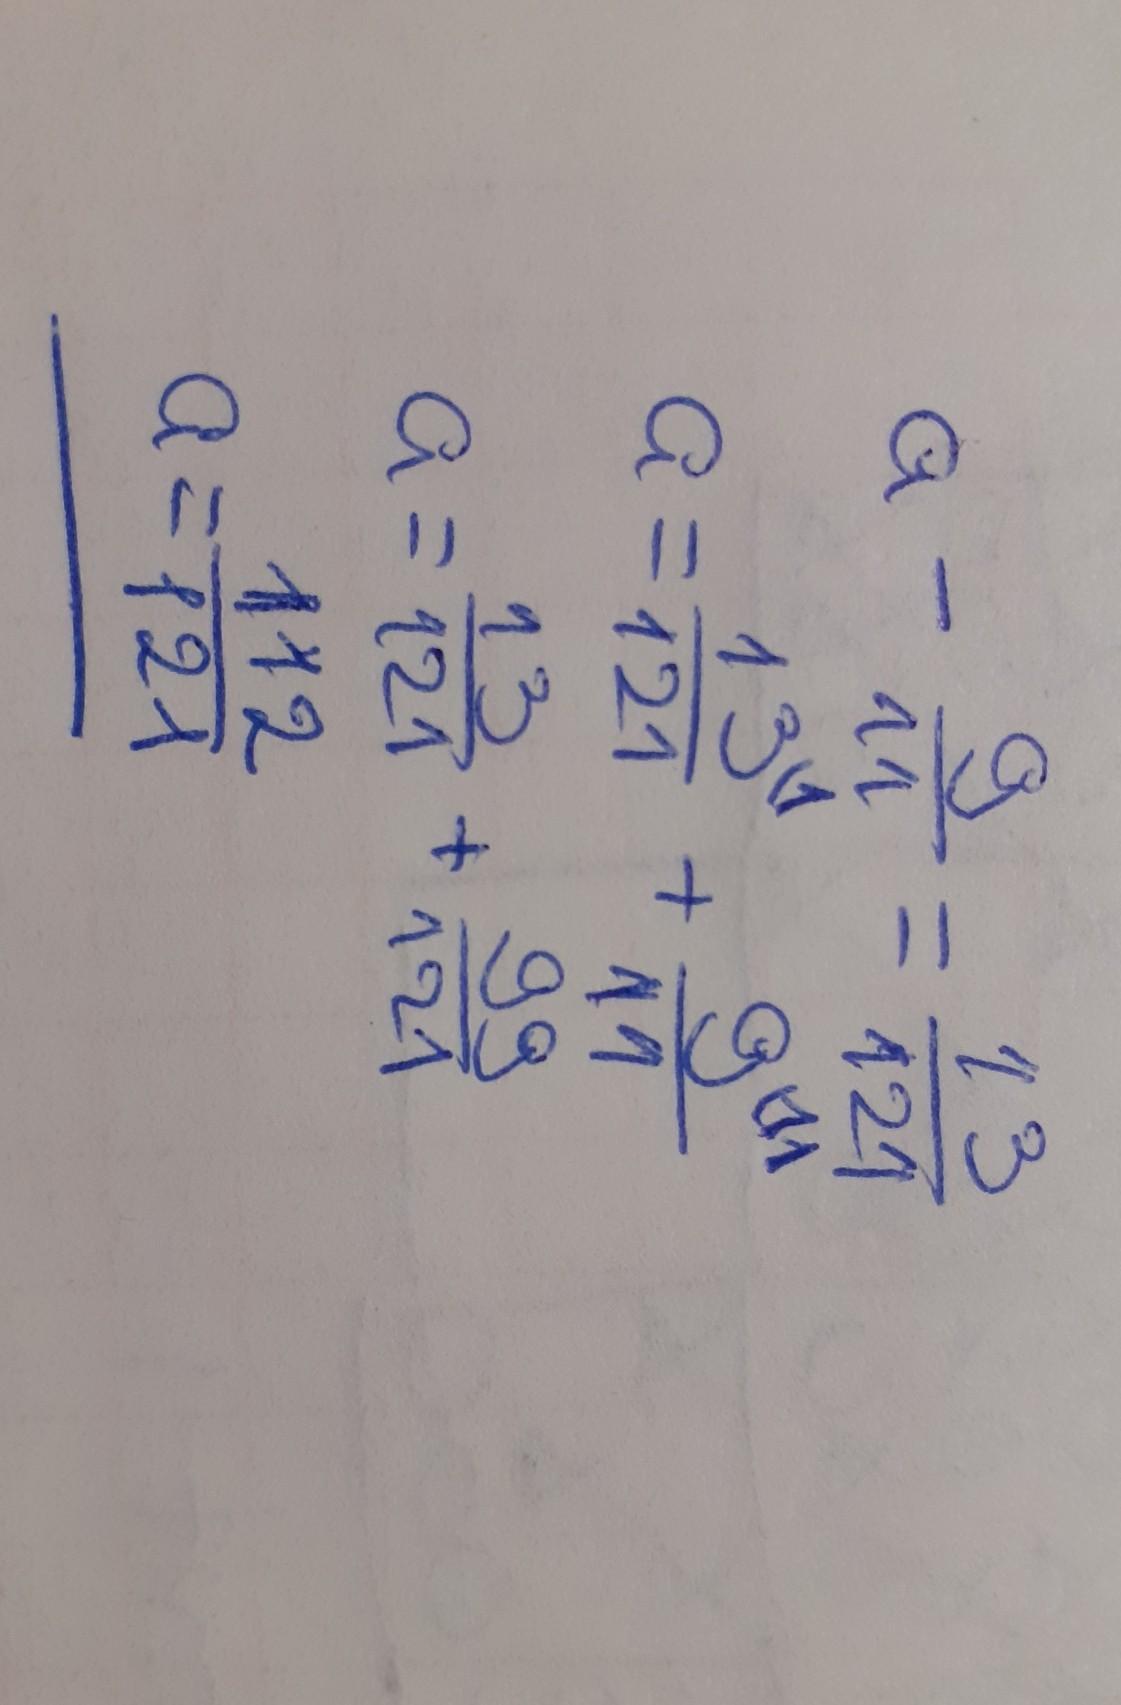 a - 9/11 = 13/121
a = 13/121 ⁽¹ + 9/11 ⁽¹¹
a = 13/121 + 99/121
a = 112/121